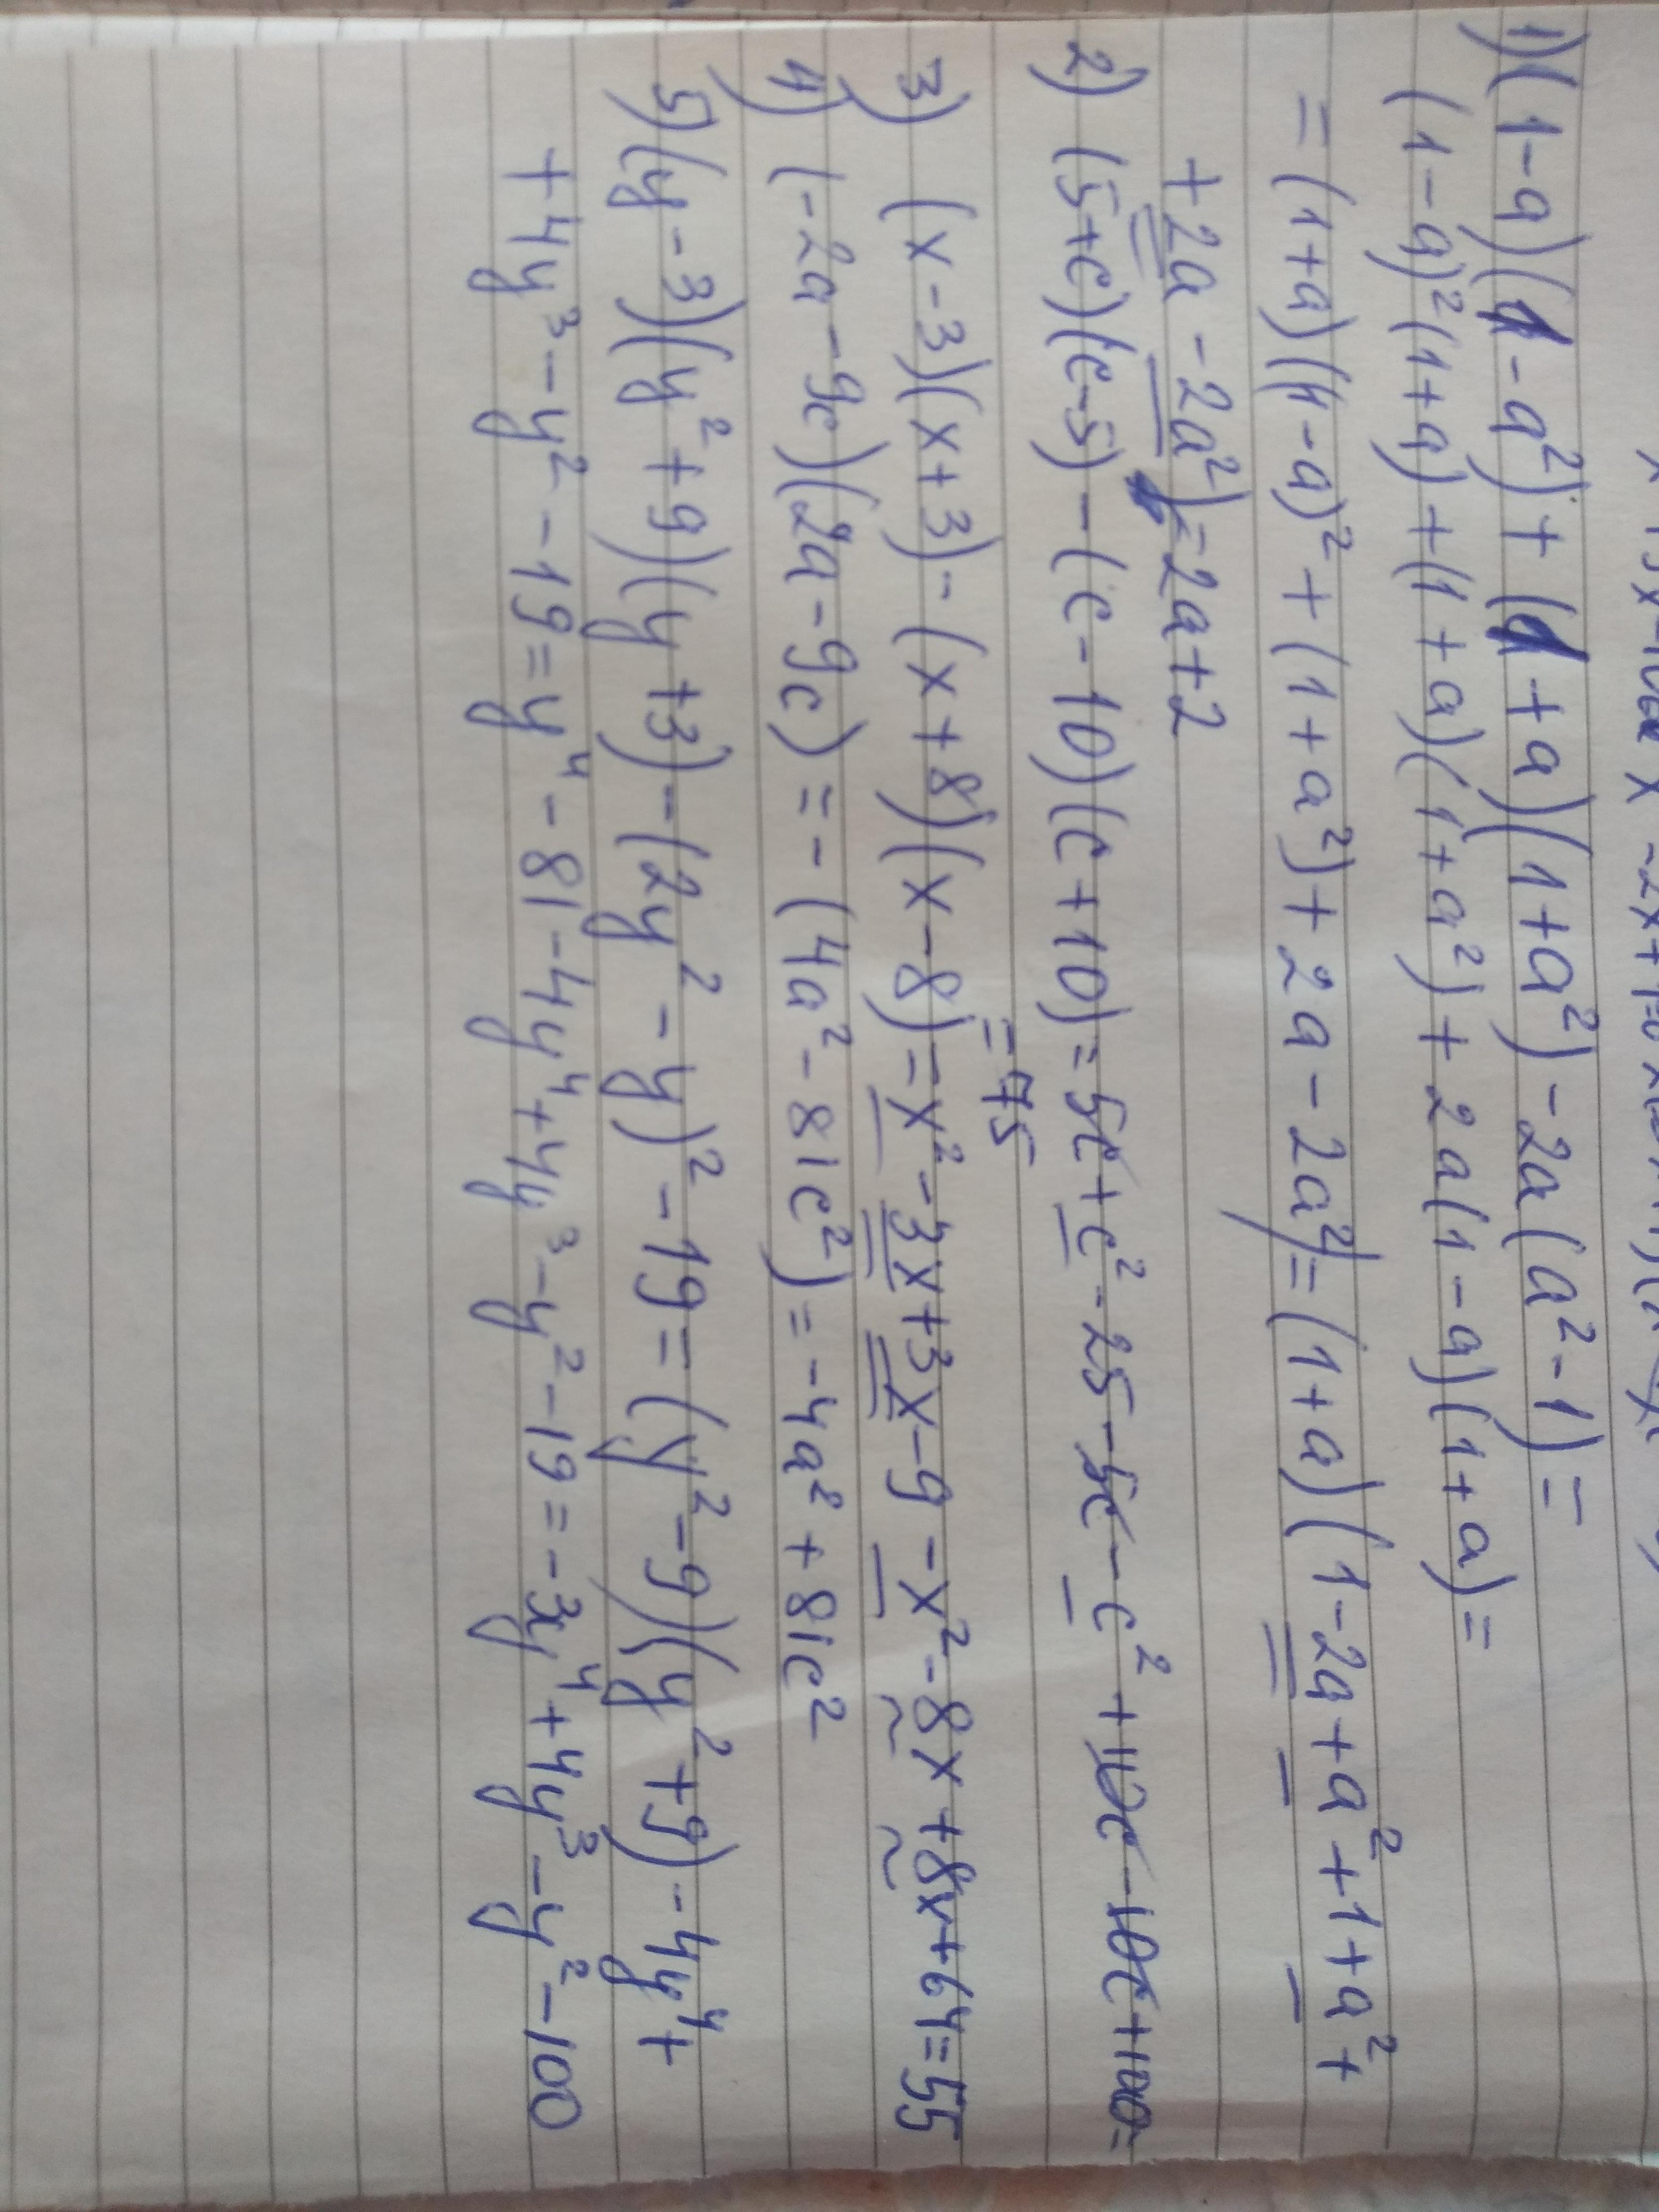 1)(1-a)(1-a²)+(1+a)(1+a²)-2a(a²-1)=
(1-a)²(1+a)+(1+a)(1+a²)+2a(1-a)(1+a)=
=(1+a)((1-a)²+(1+a²)+2a-2a²)=(1+a)(1-2a+a²+1+a²+
+2a-2a²)=2a+2
2) (5+c)(c-5)-(c-10)(c+10)=5c+c²-25-5c-c²+10c-10c+100=
=75
3) (x-3)(x+3)-(x+8)(x-8)=x²-3x+3x-9-x²-8x+8x+64=55
4) (-2a-9c)(2a-9c)=-(4a²-81c²)=-4a²+81c²
5)(y-3)(y²+9)(y+3)-(2y²-y)²-19=(y²-9)(y²+9)-4y⁴+
+4y³-y²-19=y⁴-81-4y⁴+4y³-y²-19=-3y⁴+4y³-y²-100